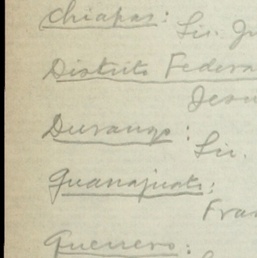 Chiapas: Lic.
Distrito Federa
Jesu
Durango:
Lic.
Guanajuato:
Fran
Guerrero: